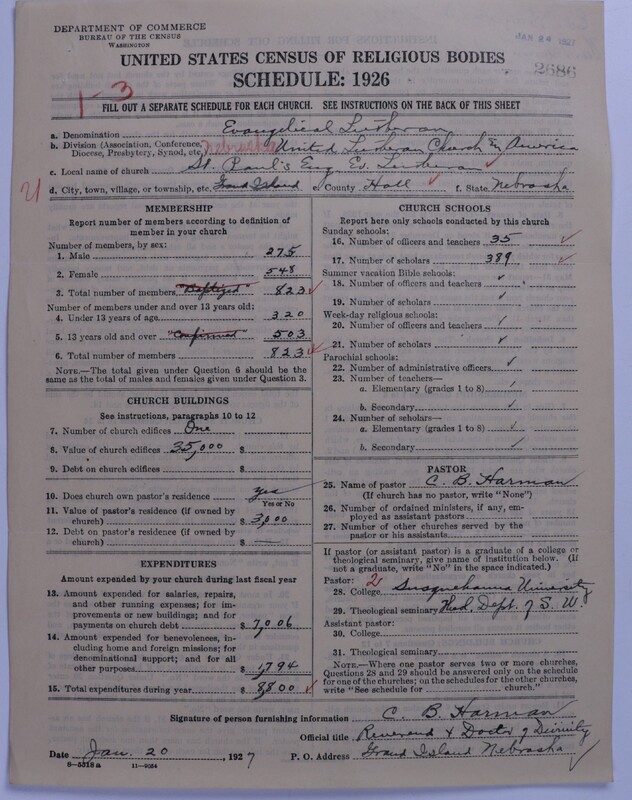 DEPARTMENT OF COMMERCE
BUREAU OF THE CENSUS
WASHINGTON
UNITED STATES CENSUS OF RELIGIOUS BODIES
SCHEDULE: 1926
2686
1-3
FILL OUT A SEPARATE SCHEDULE FOR EACH CHURCH. SEE INSTRUCTIONS ON THE BACK OF THIS SHEET
a. Denomination Evangelical Lutheran
b. Division (Association, Conference, Diocese, Presbytery, Synod, etc. Nebraska United Lutheran Church in America
c. Local name of church St. Paul's Eng. Ev. Lutheran
d. City, town, village, or township, etc. Grand Island e. County Hall f. State Nebraska
MEMBERSHIP
Report number of members according to definition of
member in your church
Number of members, by sex:
1. Male 275
2. Female 548
3. Total number of members "Baptized" 823
Number of members under and over 13 years old:
4. Under 13 years of age 320
5. 13 years old and over "Confirmed" 503
6. Total number of members 823
NOTE.—The total given under Question 6 should be
same as the total of males and females given under Question 3.
CHURCH BUILDINGS
See instructions, paragraphs 10 to 12
7. Number of church edifices One
8. Value of church edifices 35,000 $
9. Debt on church edifices $
10. Does church own pastor's residence yes
Yes or No
11. Value of pastor's residence (if owned by
church) $ 3,000
12. Debt on pastor's residence (if owned by
church) $
EXPENDITURES
Amount expended by your church during last fiscal year
13. Amount expended for salaries, repairs,
and other running expenses; for im-
provements or new buildings; and for
payments on church debt $ 7,006
14. Amount expended for benevolences, in-
cluding home and foreign missions; for
denominational support; and for all
other purposes 1,794
15. Total expenditures during year $ 8,800
CHURCH SCHOOLS
Report here only schools conducted by this church
Sunday schools:
16. Number of officers and teachers 35
17. Number of scholars 389
Summer vacation Bible schools:
18. Number of officers and teachers
19. Number of scholars
Week-day religious schools:
20. Number of officers and teachers
21. Number of scholars
Parochial schools:
22. Number of administrative officers
23. Number of teachers—
a. Elementary (grades 1 to 8)
b. Secondary
24. Number of scholars—
a. Elementary (grades 1 to 8)
b. Secondary
PASTOR
25. Name of pastor C. B. Harman
(If church has no pastor, write "None")
26. Number of ordained ministers, if any, em-
ployed as assistant pastors
27. Number of other churches served by the
pastor or his assistants
If pastor (or assistant pastor) is a graduate of a college or
theological seminary, give name of institution below. (If
not a graduate, write "No" in the space indicated.)
Pastor: 2
28. College Susquehanna University
29. Theological seminary Theol. Dept. of S. U.
Assistant pastor:
30. College
31. Theological seminary
NOTE.—Where one pastor serves two or more churches,
Questions 28 and 29 should be answered only on the schedule
for one of the churches; on the schedules for the other churches,
write "See schedule for church."
Signature of person furnishing information C. B. Harman
Official title Reverend & Doctor of Divinity
Date Jan. 20, 1927 P. O. Address Grand Island Nebraska
8-5318a 11-9254